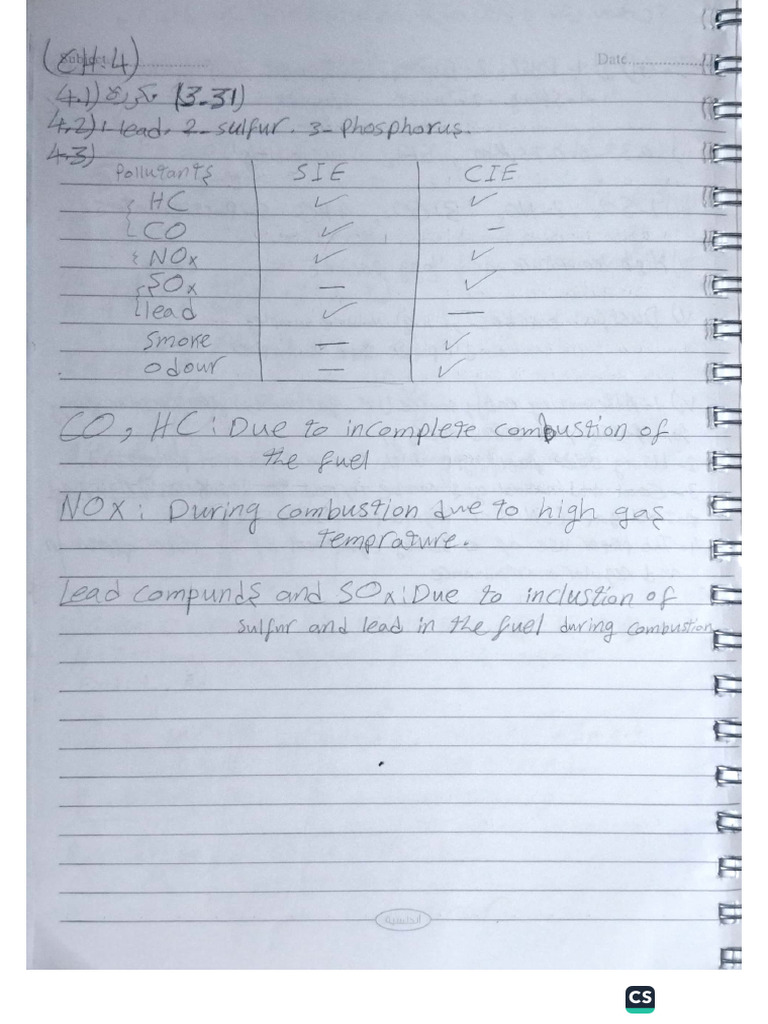 (CH.4)
Date
4.1) (3-31)
4.2) 1- lead. 2- sulfur. 3- phosphorus.
4.3)
Pollutants SIE CIE
HC ✓ ✓
CO ✓ –
NOx ✓ ✓
SOx – ✓
lead ✓ –
Smoke – ✓
odour – ✓
CO, HC: Due to incomplete combustion of
the fuel
NOx: During combustion due to high gas
temprature.
Lead compunds and SOx: Due to inclustion of
sulfur and lead in the fuel during combustion
CS